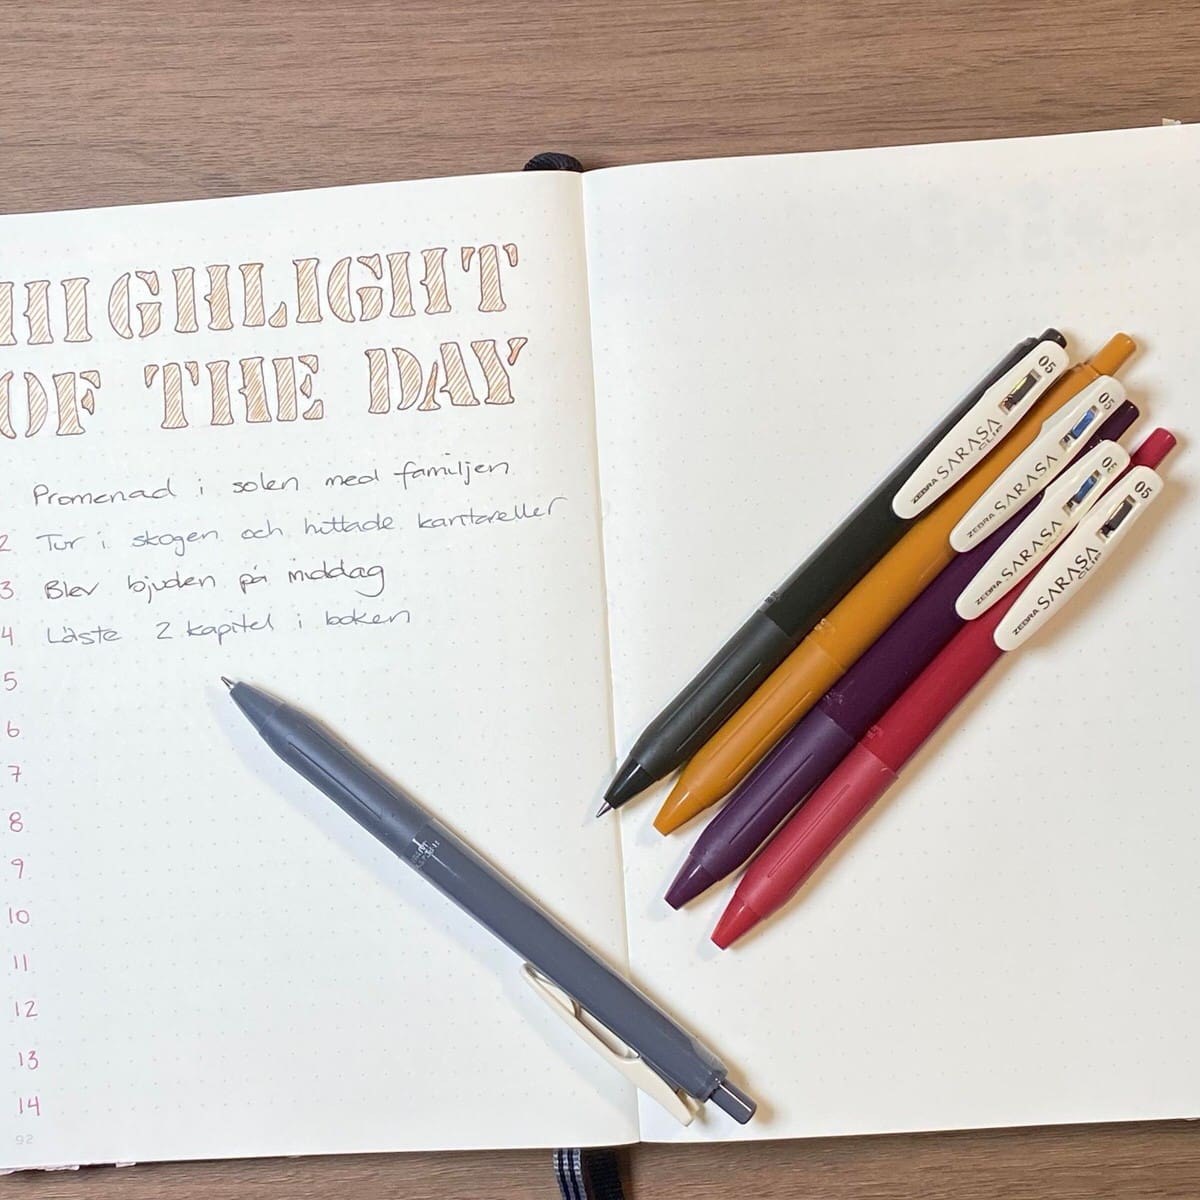 HIGHLIGHT
OF THE DAY
Promenad i solen med familjen
2 Tur i skogen och hittade kantareller
3 Blev bjuden på middag
4 Läste 2 kapitel i boken
5
6
7
8
9
10
11
12
13
14
92
ZEBRA SARASA CLIP 05
ZEBRA SARASA 05
ZEBRA SARASA 05
ZEBRA SARASA CLIP 05